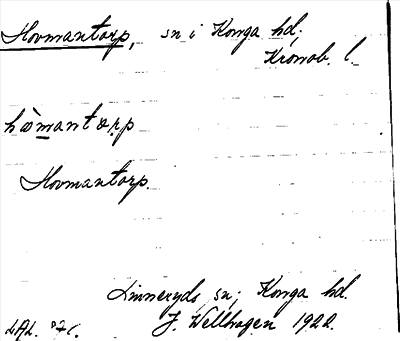 Hovmantorp, sn i Konga hd;
Kronob. l.
hòmantorp
Hovmantorp.
Linneryds sn; Konga hd.
J. Wellhagen 1922.